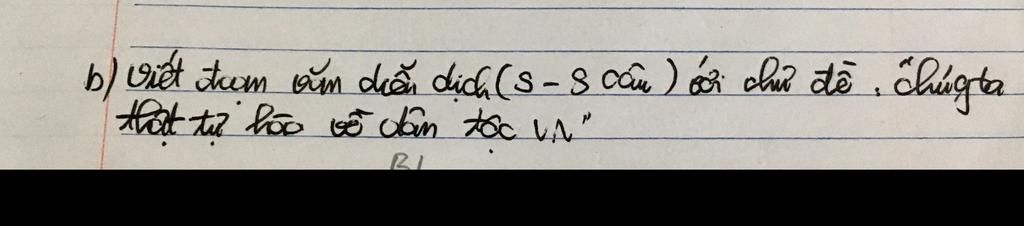 b) Viết đoạn văn diễn dịch (5 - 8 câu) với chủ đề: "Chúng ta
thật tự hào về dân tộc VN"